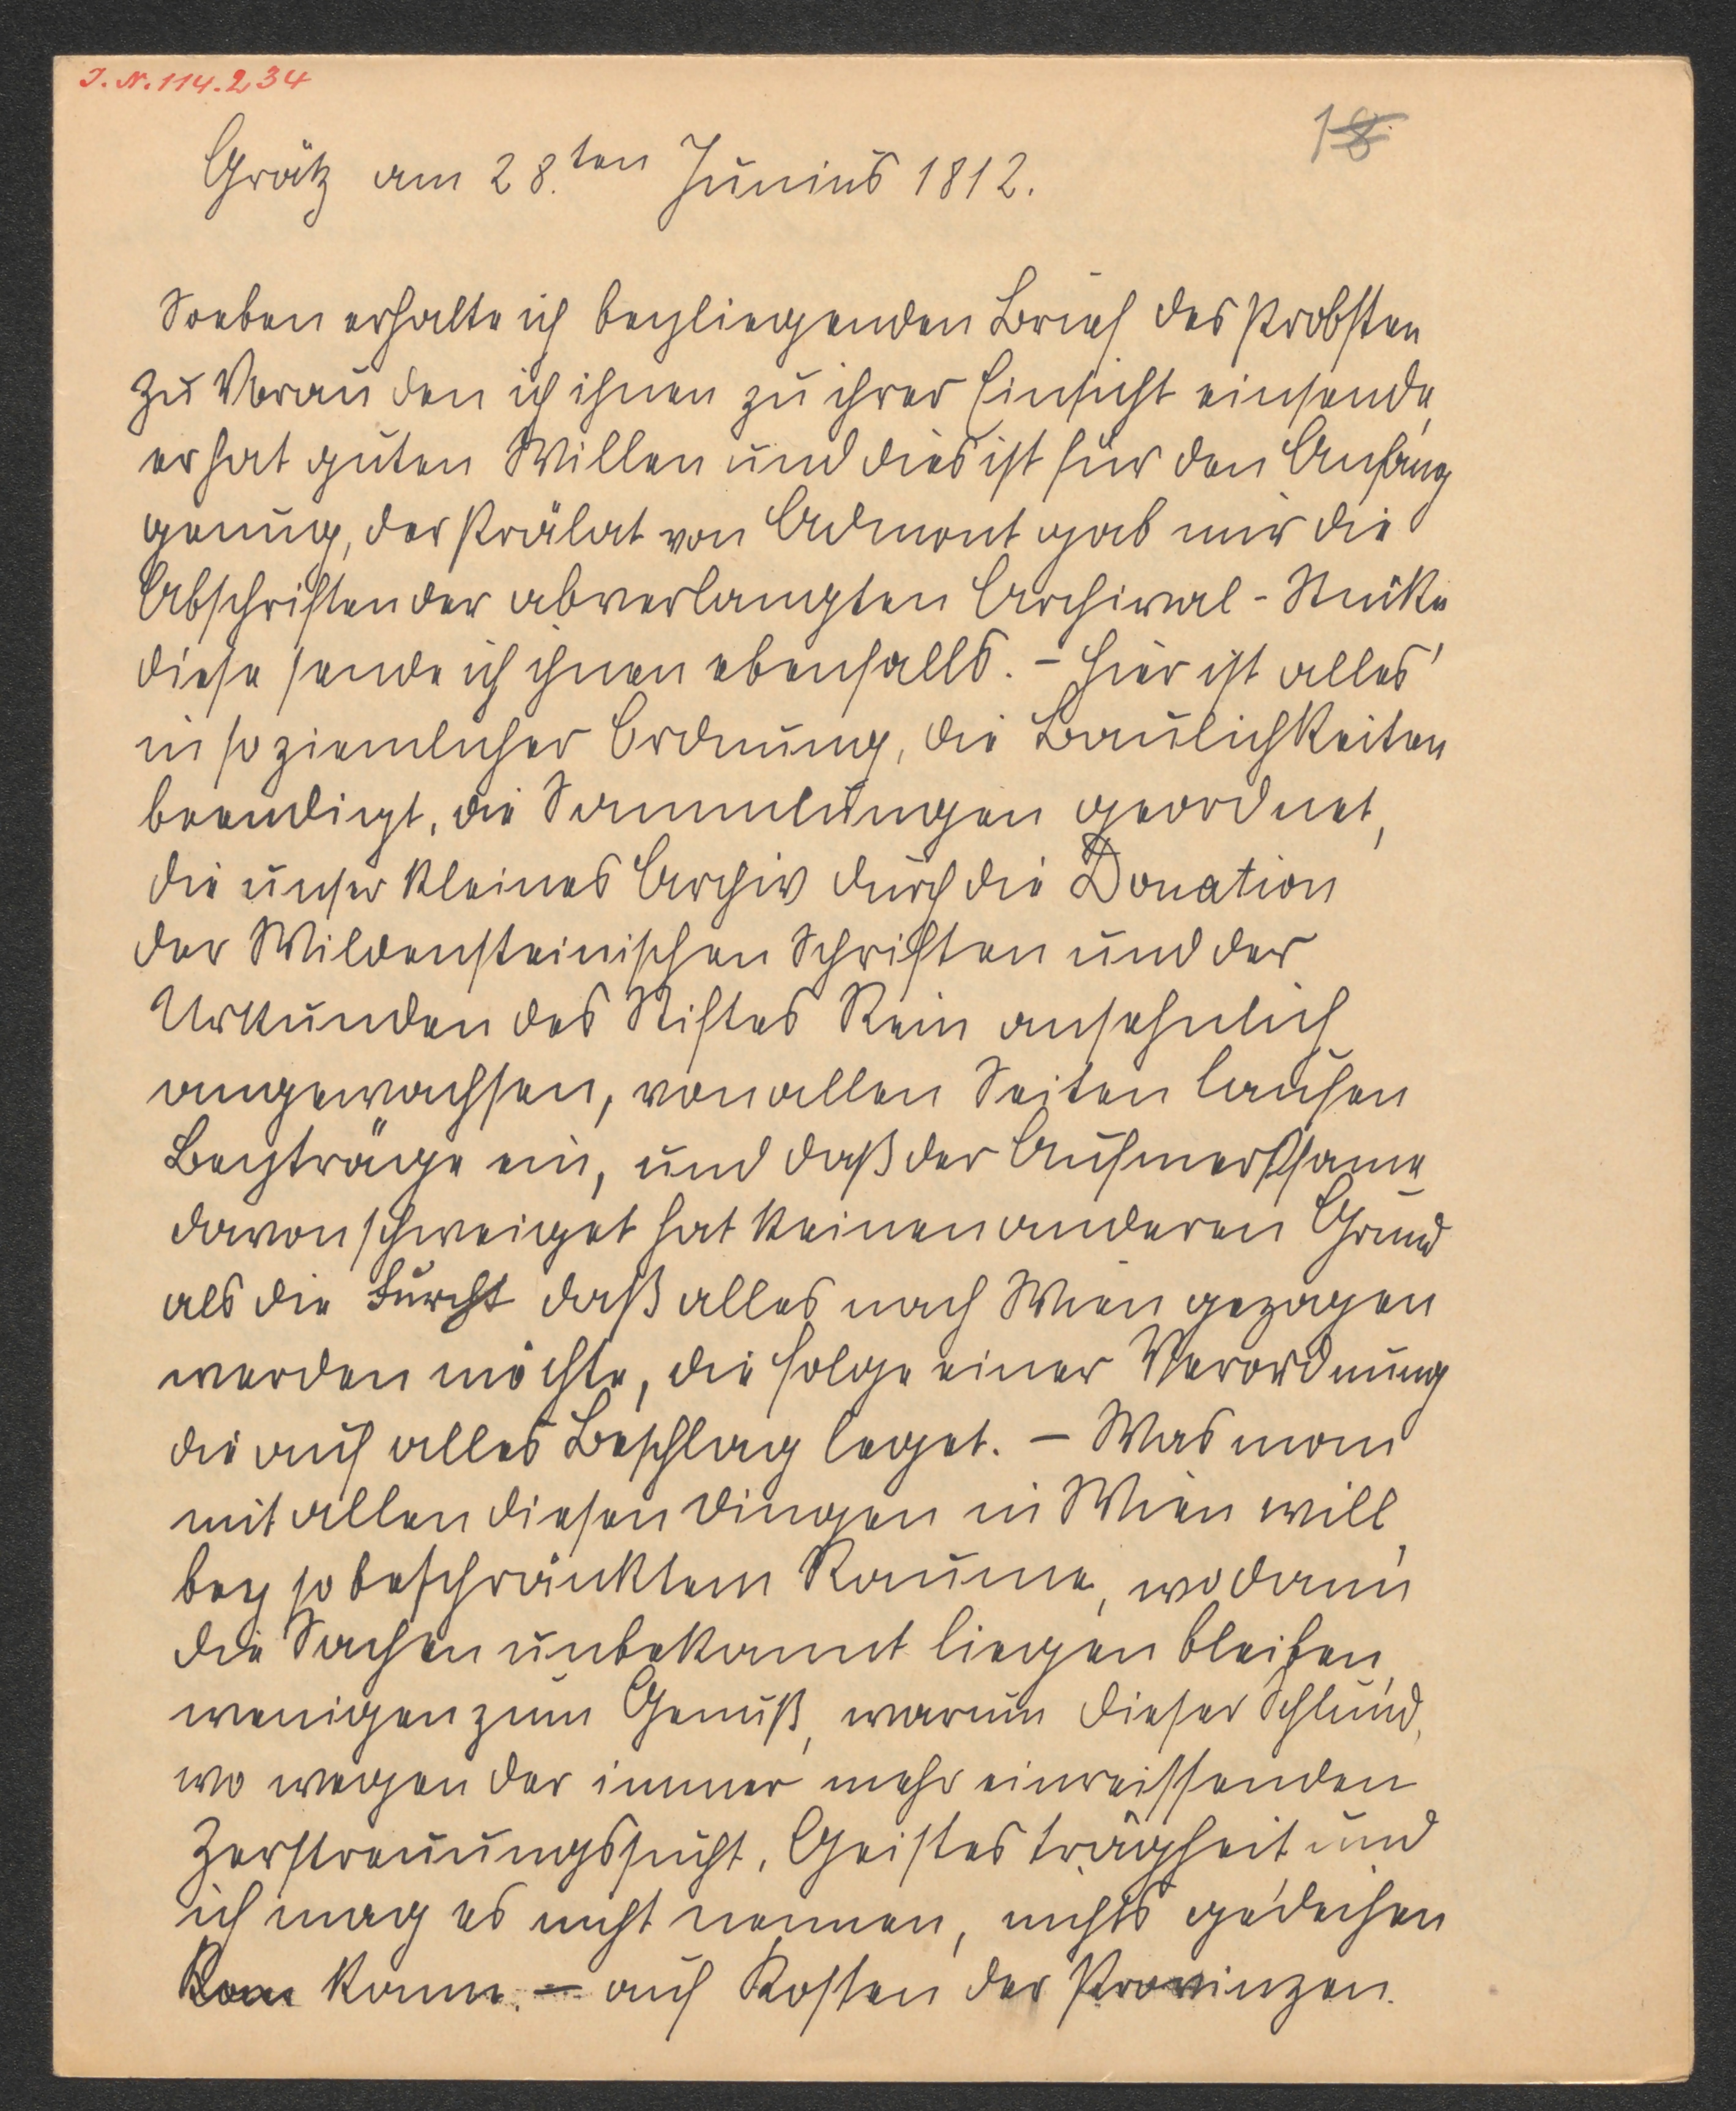 J. N. 114.234
18
Grätz am 28.ten Junius 1812.
Soeben erhalte ich beyliegenden Brief des Probsten
zu Vorau den ich ihnen zu ihrer Einsicht einsende,
er hat guten Willen und dies ist für den Anfang
genug, der Prälat von Admont gab mir die
Abschriften der abverlangten Archival-Stücke
diese sende ich ihnen ebenfalls. – Hier ist alles
in so ziemlicher Ordnung, die Baulichkeiten
beendigt, die Sammlungen geordnet,
die unser kleines Archiv durch die Donation
der Wildensteinischen Schriften und der
Urkunden des Stiftes Rein ansehnlich
angewachsen, von allen Seiten laufen
Beyträge ein, und daß der Aufmerksame
davon schweiget hat keinen anderen Grund
als die Furcht daß alles nach Wien gezogen
werden möchte, die Folge einer Verordnung
die auf alles Beschlag leget. – Was man
mit allen diesen Dingen in Wien will,
bey so beschränktem Raume, wo dann
die Sachen unbekannt liegen bleiben,
wenigen zum Genuß, warum dieser Schlund,
wo wegen der immer mehr einreissenden
Zerstreuungssucht, Geistesträgheit und
ich mag es nicht nennen, nichts gedeihen
kann. – auf Kosten der Provinzen.